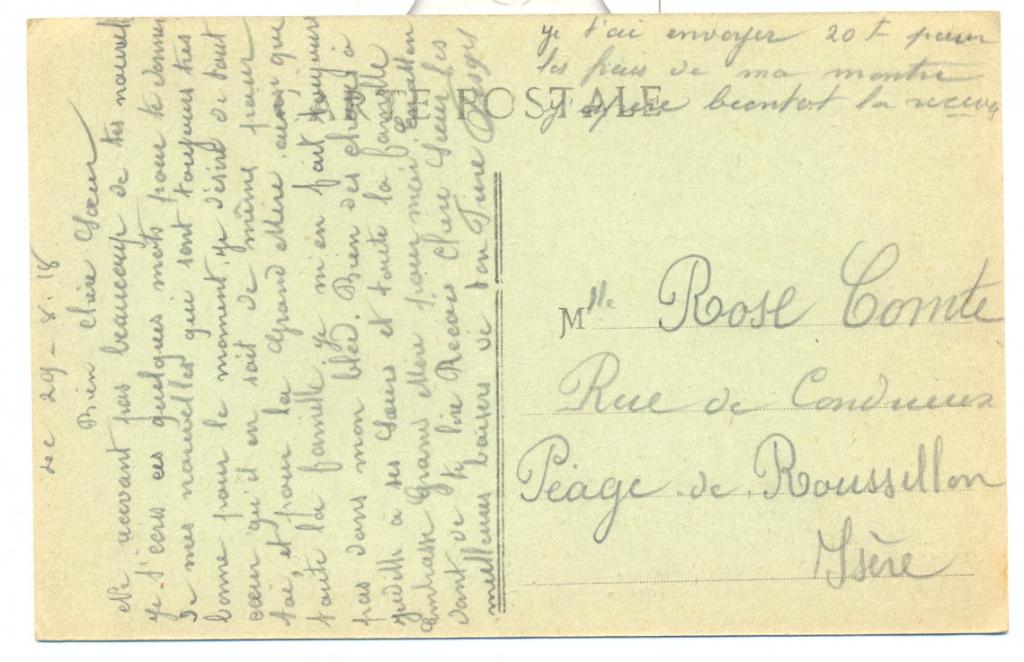 Le 29-8-18
Bien chère Sœur
Ne recevant pas beaucoup de tes nouvell
je t'écris ces quelques mots pour te donner
de mes nouvelles qui sont toujours très
bonne pour le moment, je désire de tout
cœur qu'il en soit de même pour
toi, et pour la Grand Mère ainsi que
toute la famille. Je m'en fait toujours
pas dans mon bled. Bien des choses à
à ses Sœurs et toute la famille
Embrasse Grand Mère pour moi. Enatten
dant de te lire Recois Chère Sœur les
meilleurs baisers de ton Frère
je t'ai envoyer 20 F pour
les frais de ma montre
j'espère bientot la recevoir
CARTE POSTALE
Mlle Rose Comte
Rue de Condrieux
Péage de Roussillon
Isère